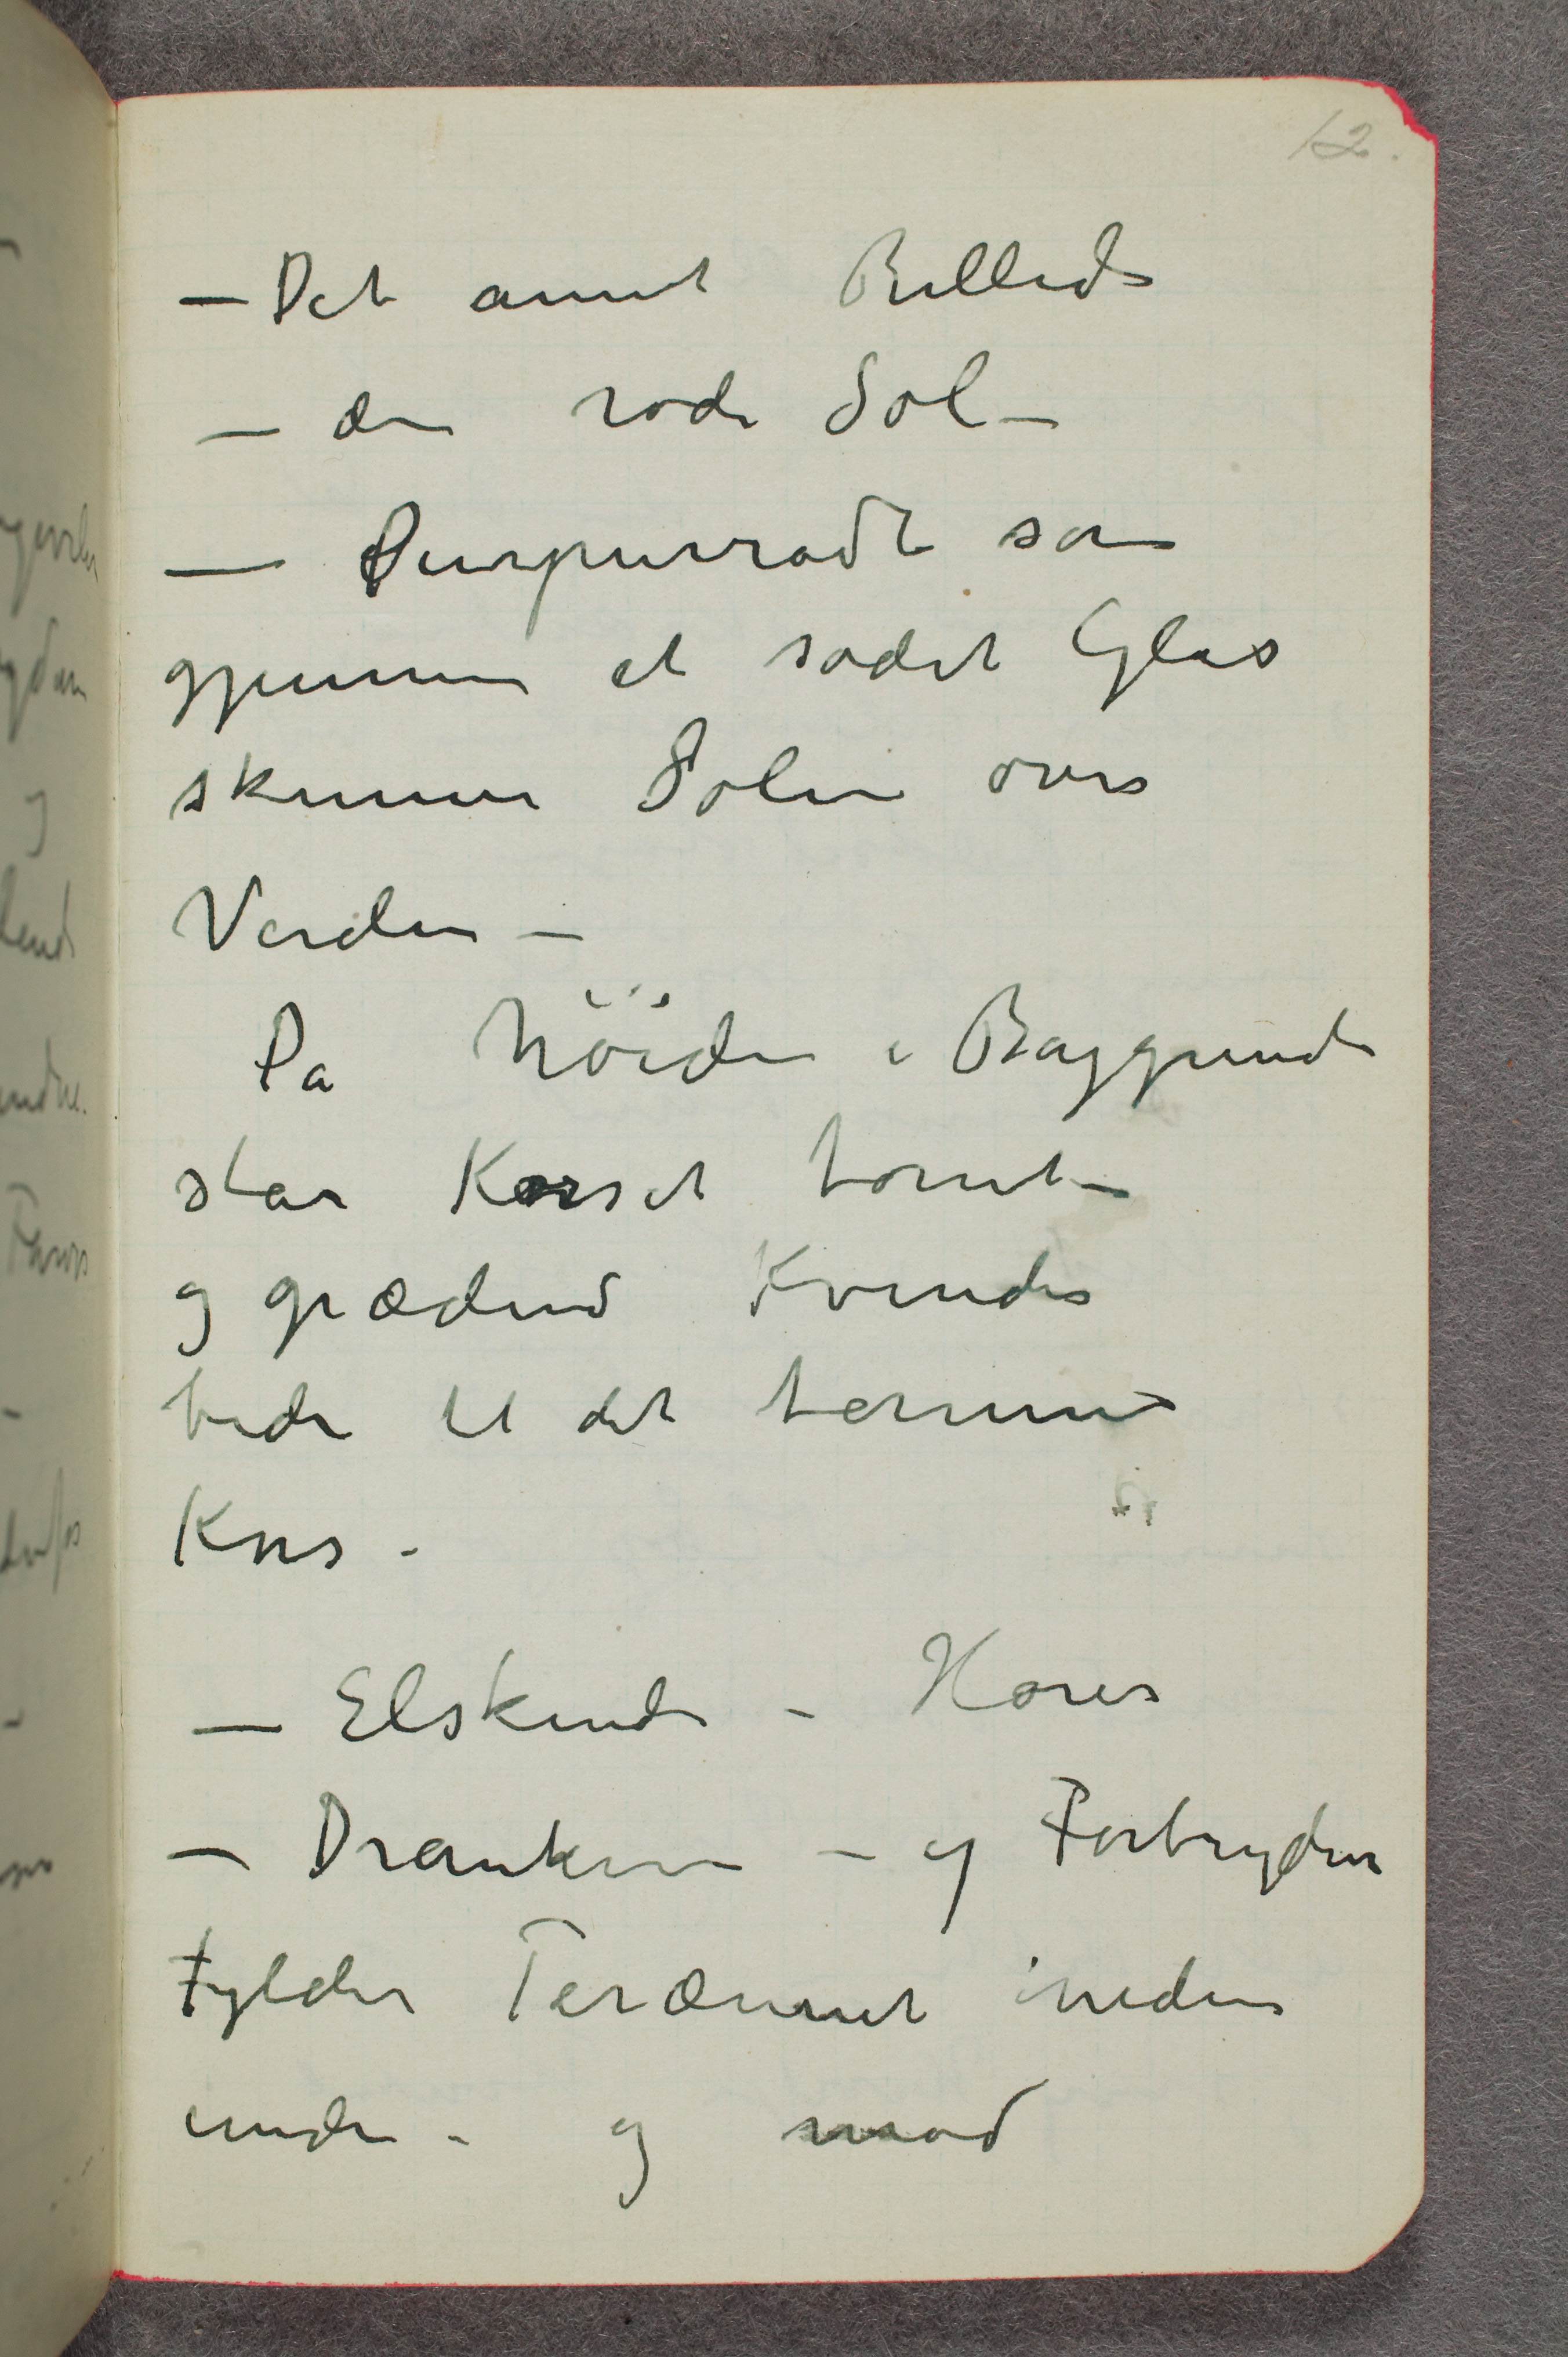 12.
– Det annet Billede
– den røde Sol –
– Purpurrødt som
gjennem et sodet Glas
skinner Solen over
Verden –
På höiden i Baggrunden
står Korset tomt –
og grædend Kvinder
beder til det tomme
Kors –
– Elskende – Horer
– Drankere – og Forbrydere
Fylder Terænnet neden
under – og mod